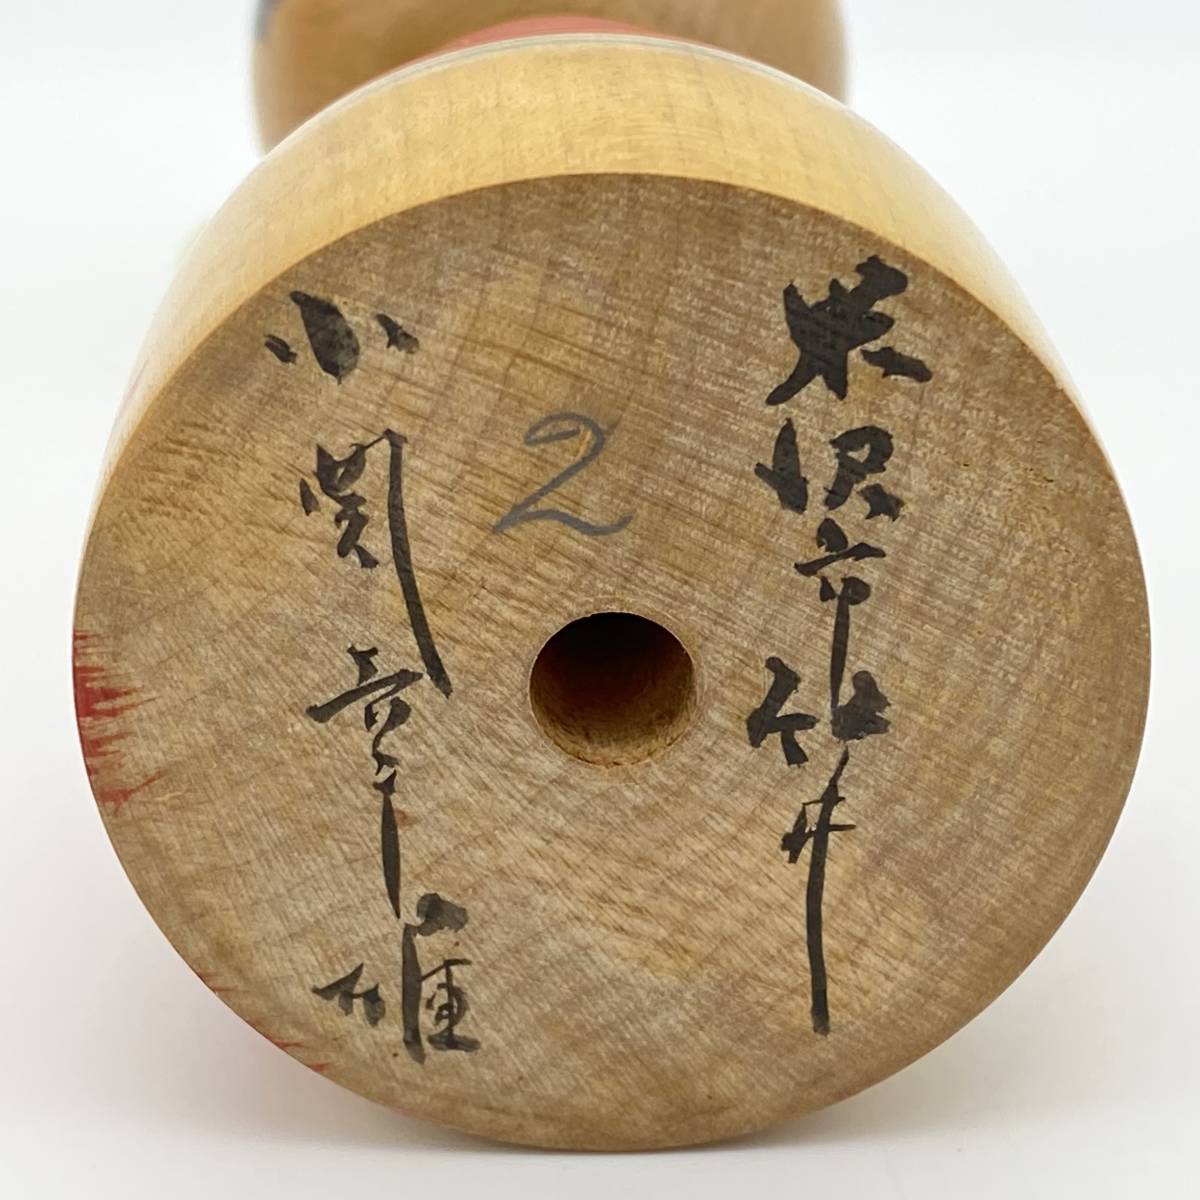 米沢市 舩井
2
小関幸雄